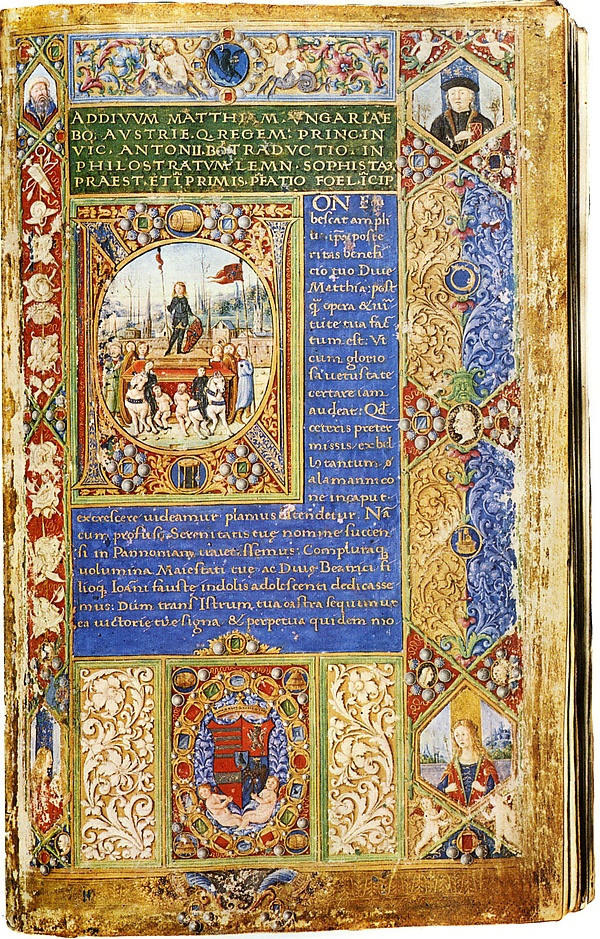 AD DIVVM MATTHIAM VNGARIAE
BO. AVSTRIE. Q. REGEM: PRINC. IN
VIC. ANTONII. BO. TRADVCTIO. IN
PHILOSTRATVM LEMN. SOPHISTA
PRAEST. ET I PRIMIS. PFATIO FOELICIP
NON
bescat ampli
poste
ritas benefi
cio tuo Diue
Matthia: post
q̃ opera & uir
tute tua fac
tum est: Vt
cum glorio
sa uetustate
certare iam
audeat: Qd
ceteris preter
missis
tantum
alamannico
ne
excrescere uideamur planius ostendetur. Nã
cum Serenitatis tuę nomine succen
si in Pannoniam Compluraq
uolumina Maiestati tue ac Diuę Beatrici fi
lioq Ioãni fauste indolis adolescenti dedicasse
mus: Dum trans Istrum tua castra sequimur
ea uictorię tuę signa & perpetua quidem mo